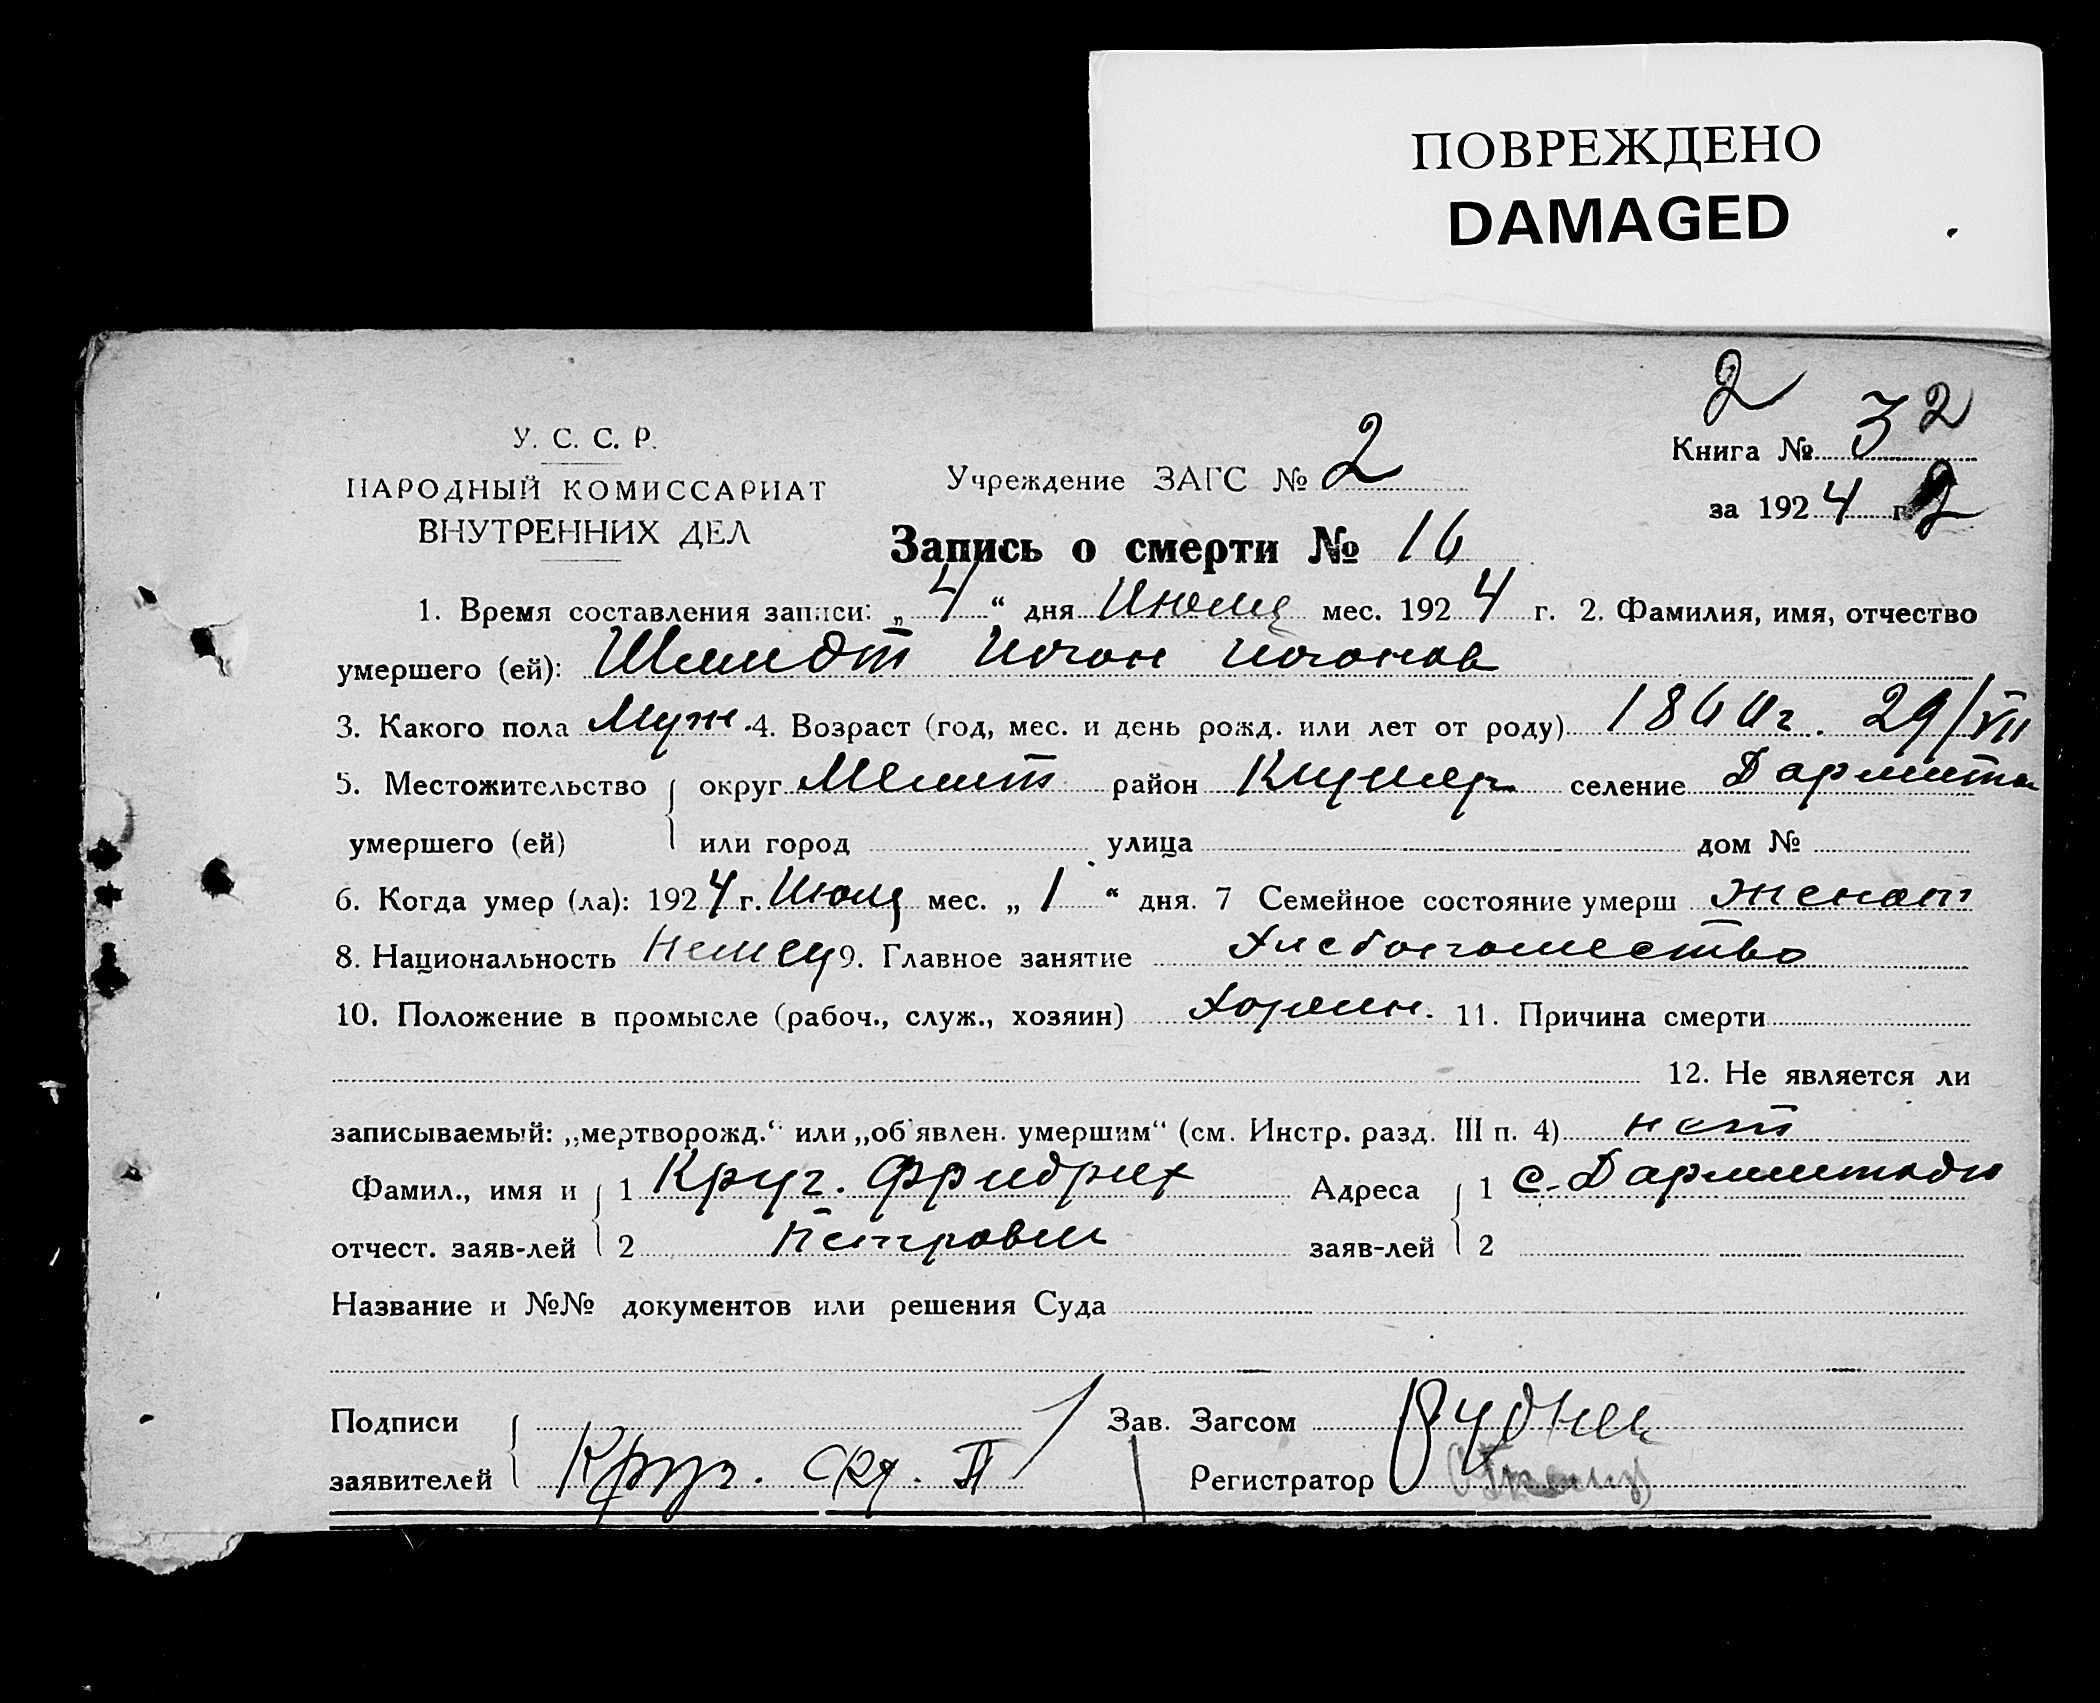 ПОВРЕЖДЕНО
DAMAGED
2
У. С. С. Р.
НАРОДНЫЙ КОМИССАРИАТ
ВНУТРЕННИХ ДЕЛ
Учреждение ЗАГС № 2
Книга № 3 2
за 1924 г. 2
Запись о смерти № 16
1. Время составления записи: „4“ дня Июля мес. 1924 г. 2. Фамилия, имя, отчество
умершего (ей): Шмидт Иоган Иоганов
3. Какого пола Муж. 4. Возраст (год, мес. и день рожд. или лет от роду) 29/VII
5. Местожительство округ Мелит район селение Дармшта
умершего (ей) или город улица дом №
6. Когда умер (ла): 1924 г. Июля мес. „1“ дня. 7 Семейное состояние умерш женат
8. Национальность Немец 9. Главное занятие Хлебопашество
10. Положение в промысле (рабоч., служ., хозяин) Хозяин. 11. Причина смерти
12. Не является ли
записываемый: „мертворожд.“ или „об'явлен. умершим“ (см. Инстр. разд. III п. 4) нет
Фамил., имя и 1 Круг. Фридрих Адреса 1 с. Дармштадт
отчест. заяв-лей 2 Петрович заяв-лей 2
Название и №№ документов или решения Суда
Подписи Зав. Загсом
заявителей Круг. Регистратор